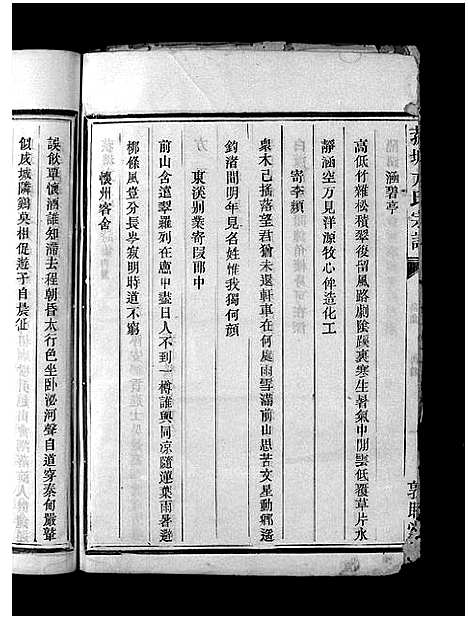 涵碧亭
高低竹雜松積翠後留風路劇陰溪裏寒生暑氣中閒雲低覆草片水
靜涵空方見洋源牧心俾造化工
寄李頻
衆木已搖落望君猶未還軒車在何處雨雪滿前山思苦文星動鄉遙
釣渚閒明年見名姓惟我獨何顏
東溪別業寄段郎中
前山含遠翠羅列在窻中盡日人不到一樽誰與同凉隨蓮葉雨暑避
柳條風豈分長岑寂明時道不窮
懷州客舍
誤飲單懷酒誰知滯去程朝昏太行色坐臥泌河聲自道穿秦甸嚴聲
似戍城隣鷄莫相促遊子自晨征
方氏宗譜